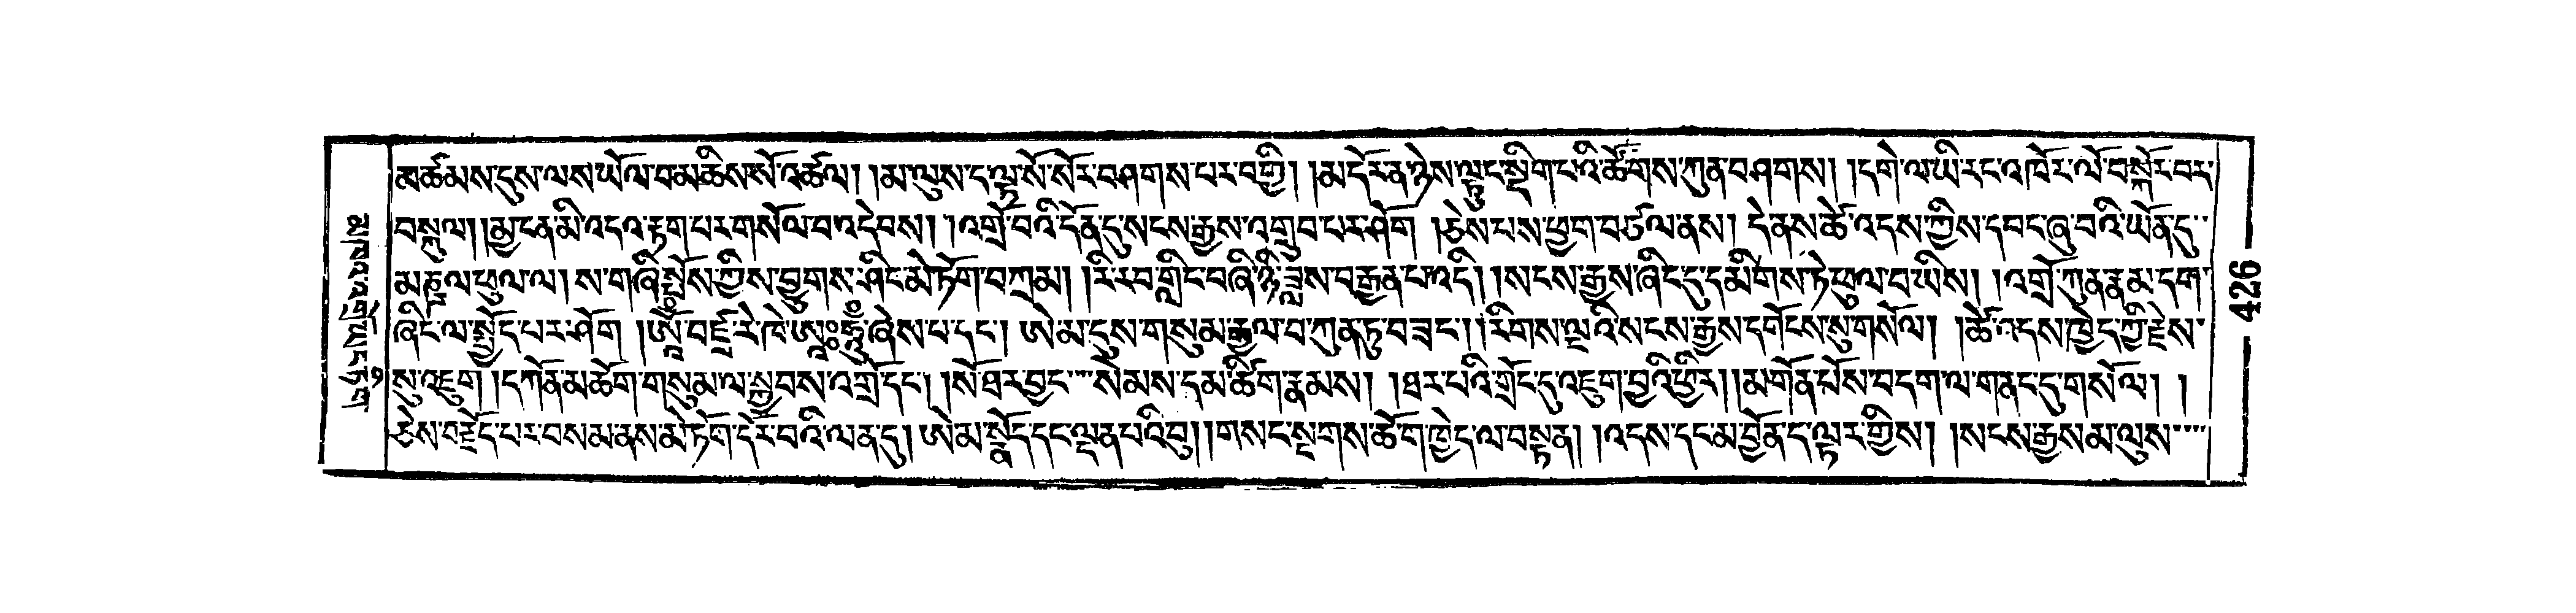 མཚམས་དུས་ལས་ཡོལ་བ་མཆིས་སོ་འཚལ། །མ་ལུས་ད་ལྟ་སོ་སོར་བཤགས་པར་བགྱི། །མ་དོར་ན་ཉེས་ལྟུང་སྡིག་པའི་ཚོགས་ཀུན་བཤགས། །དགེ་ལ་ཡི་རང་འཁོར་ལོ་བསྐོར་བར་
བསྐུལ། །མྱ་ངན་མི་འདའ་རྟག་པར་གསོལ་བ་འདེབས། །འགྲོ་བའི་དོན་དུ་སངས་རྒྱས་འགྲུབ་པར་ཤོག །ཅེས་པས་ཕྱག་བཙལ་ནས། དེ་ནས་ཚེ་འདས་ཀྱིས་དབང་ཞུ་བའི་ཡོན་དུ་
མཎྜལ་ཕུལ་ལ། ས་གཞི་སྤོས་ཀྱིས་བྱུགས་ཤིང་མེ་ཏོག་བཀྲམ། །རི་རབ་གླིང་བཞི་ཉི་ཟླས་བརྒྱན་པ་འདི། །སངས་རྒྱས་ཞིང་དུ་དམིགས་ཏེ་ཕུལ་བ་ཡིས། །འགྲོ་ཀུན་རྣམ་དག་
ཞིང་ལ་སྤྱོད་པར་ཤོག །ཨོཾ་བཛྲ་རེ་ཁེ་ཨཱཿཧཱུྃ་ཞེས་པ་དང་། ཨེ་མ་དུས་གསུམ་རྒྱལ་བ་ཀུན་ཏུ་བཟང་། །རིགས་ལྔའི་སངས་རྒྱས་དགོངས་སུ་གསོལ། །ཚེ་འདས་ཁྱེད་ཀྱི་རྗེས་
སུ་འཇུག །དཀོན་མཆོག་གསུམ་ལ་སྐྱབས་འགྲོ་དང་། །སོ་ཐར་བྱང་སེམས་དམ་ཚིག་རྣམས། །ཐར་པའི་གྲོང་དུ་འཇུག་བྱའི་ཕྱིར། །མགོན་པོས་བདག་ལ་གནང་དུ་གསོལ། །
ཅེས་བརྗོད་པར་བསམ་ནས་མེ་ཏོག་དོར་བའི་ལན་དུ། ཨེ་མ་སྣོད་དང་ལྡན་པའི་བུ། །གསང་སྔགས་ཆོ་ག་ཁྱེད་ལ་བསྟན། །འདས་དང་མ་བྱོན་ད་ལྟར་གྱིས། །སངས་རྒྱས་མ་ལུས་